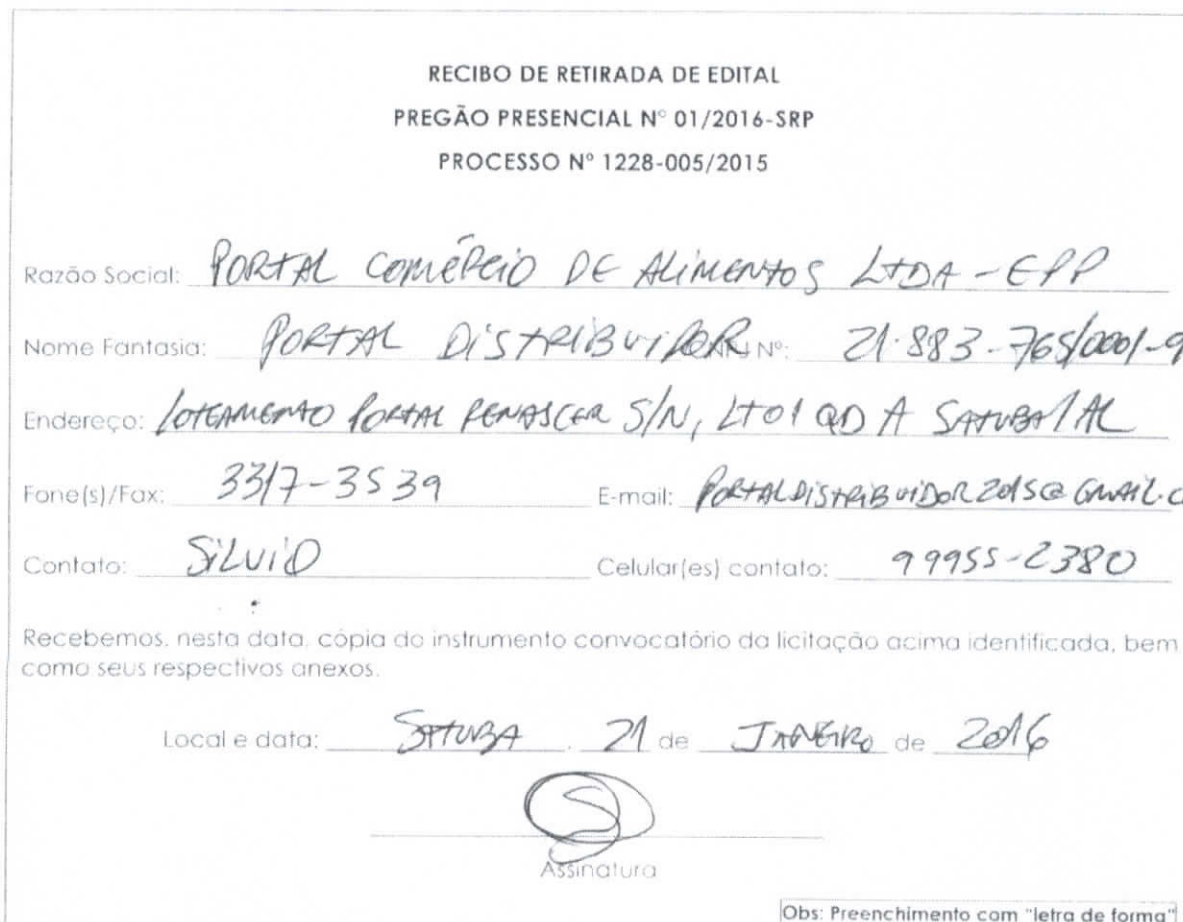 RECIBO DE RETIRADA DE EDITAL
PREGÃO PRESENCIAL Nº 01/2016-SRP
PROCESSO Nº 1228-005/2015
Razão Social: PORTAL COMÉRCIO DE ALIMENTOS LTDA - EPP
Nome Fantasia: PORTAL DISTRIBUIDOR Nº: 21.883-765/0001-9
Endereço: LOTEAMENTO PORTAL RENASCER S/N, LT01 QD A SATUBA/AL
Fone(s)/Fax: 3317-3539 E-mail: PORTALDISTRIBUIDOR2015@GMAIL.C
Contato: SILVIO Celular(es) contato: 99955-2380
Recebemos, nesta data, cópia do instrumento convocatório da licitação acima identificada, bem
como seus respectivos anexos.
Local e data: SATUBA, 21 de JANEIRO de 2016
Assinatura
Obs: Preenchimento com "letra de forma"